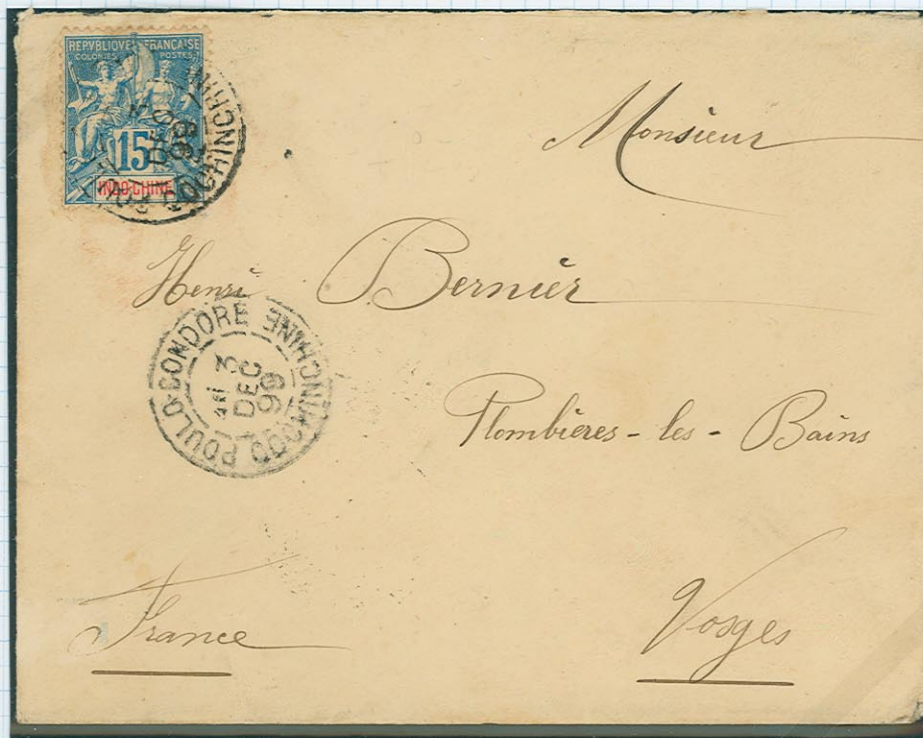 REPVBLIQVE FRANÇAISE
COLONIES POSTES
15
INDO-CHINE
COCHINCHINE
DEC
99
Monsieur
Henri Bernier
POULO-CONDORE COCHINCHINE
3
DEC
99
Plombières-les-Bains
Vosges
France